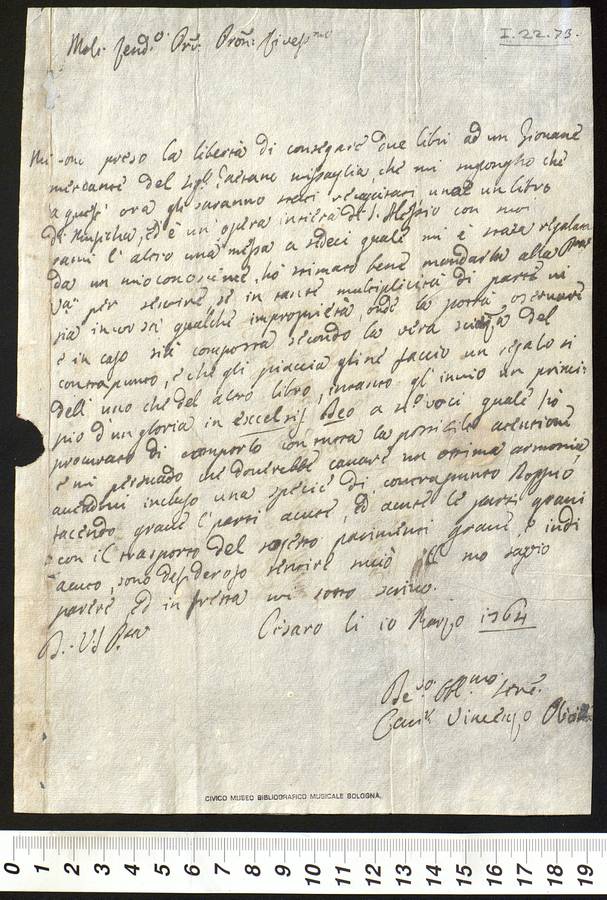 I. 22. 73.
Mol: Rend.º Pre.
Mi son preso la libertà di consegnare due libri ad un Giovane
mercante del Sig.r Gaetano Missaglia, che mi suppongho che
a quest' ora gli saranno stati recapitati, uno è un libro
di Musicha, ed è un opera intiera di
l'altro una messa a sedeci quale mi è stata regalata
da un mio conoscente, hò stimato bene mandarla alla
per sentire se in tanta multiplicità di parte vi
sia incorsa qualche improprietà, onde la potrà osservare
e in caso sii composta secondo la vera scienza del
contrapunto, e che gli piaccia gli ne faccio un regalo si
dell' uno che del altro libro, intanto gl' invio un princi-
pio d'un gloria in excelsis Deo a voci quale hò
procurato di comporlo con tutta la possibile atenzione
e mi persuado che doverebbe cavare un ottima armonia
avendovi incluso una specie di contrapunto doppio
facendo grave l' parti acute, ed acute le parti gravi
con il trasporto del grave, e indi
acuto, sono desideroso sentire suo saggio
parere ed in fretta mi sotto scrivo.
D. V.
Pesaro li 10 Marzo 1764
Vincenzo
CIVICO MUSEO BIBLIOGRAFICO MUSICALE BOLOGNA.
0 1 2 3 4 5 6 7 8 9 10 11 12 13 14 15 16 17 18 19